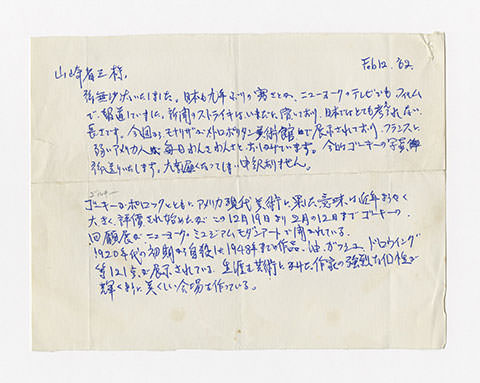 山崎省三様 Feb 12. '62
御無沙汰いたしました。日本も九年ぶりの寒さとか、ニューヨークのテレビでも、フィルム
で報道していました。新聞のストライキはいまだに続いており、日本ではとても考えられない
長さです。今週からモナリザがメトロポリタン美術館で展示されており、フランスに
弱いアメリカ人は毎日わんさわんさとおしかけています。今日ゴーキーの写真、
御送りいたします。大変遅くなって申訳ありません。
ゴーキー
ゴーキーはポロックとともに、アメリカ現代美術に果した意味は近年ようやく
大きく評価され始めたが この12月19日より2月の12日までゴーキーの
回顧展がニューヨーク・ミュジアム・モダンアートで開かれている。
1920年代の初期から自殺した1948年までの作品、油、ガッシュ、ドロウイング
等121点が展示されている。生涯を美術にかけた作家の強烈な個性が
輝くばかりに美しい会場を作っている。